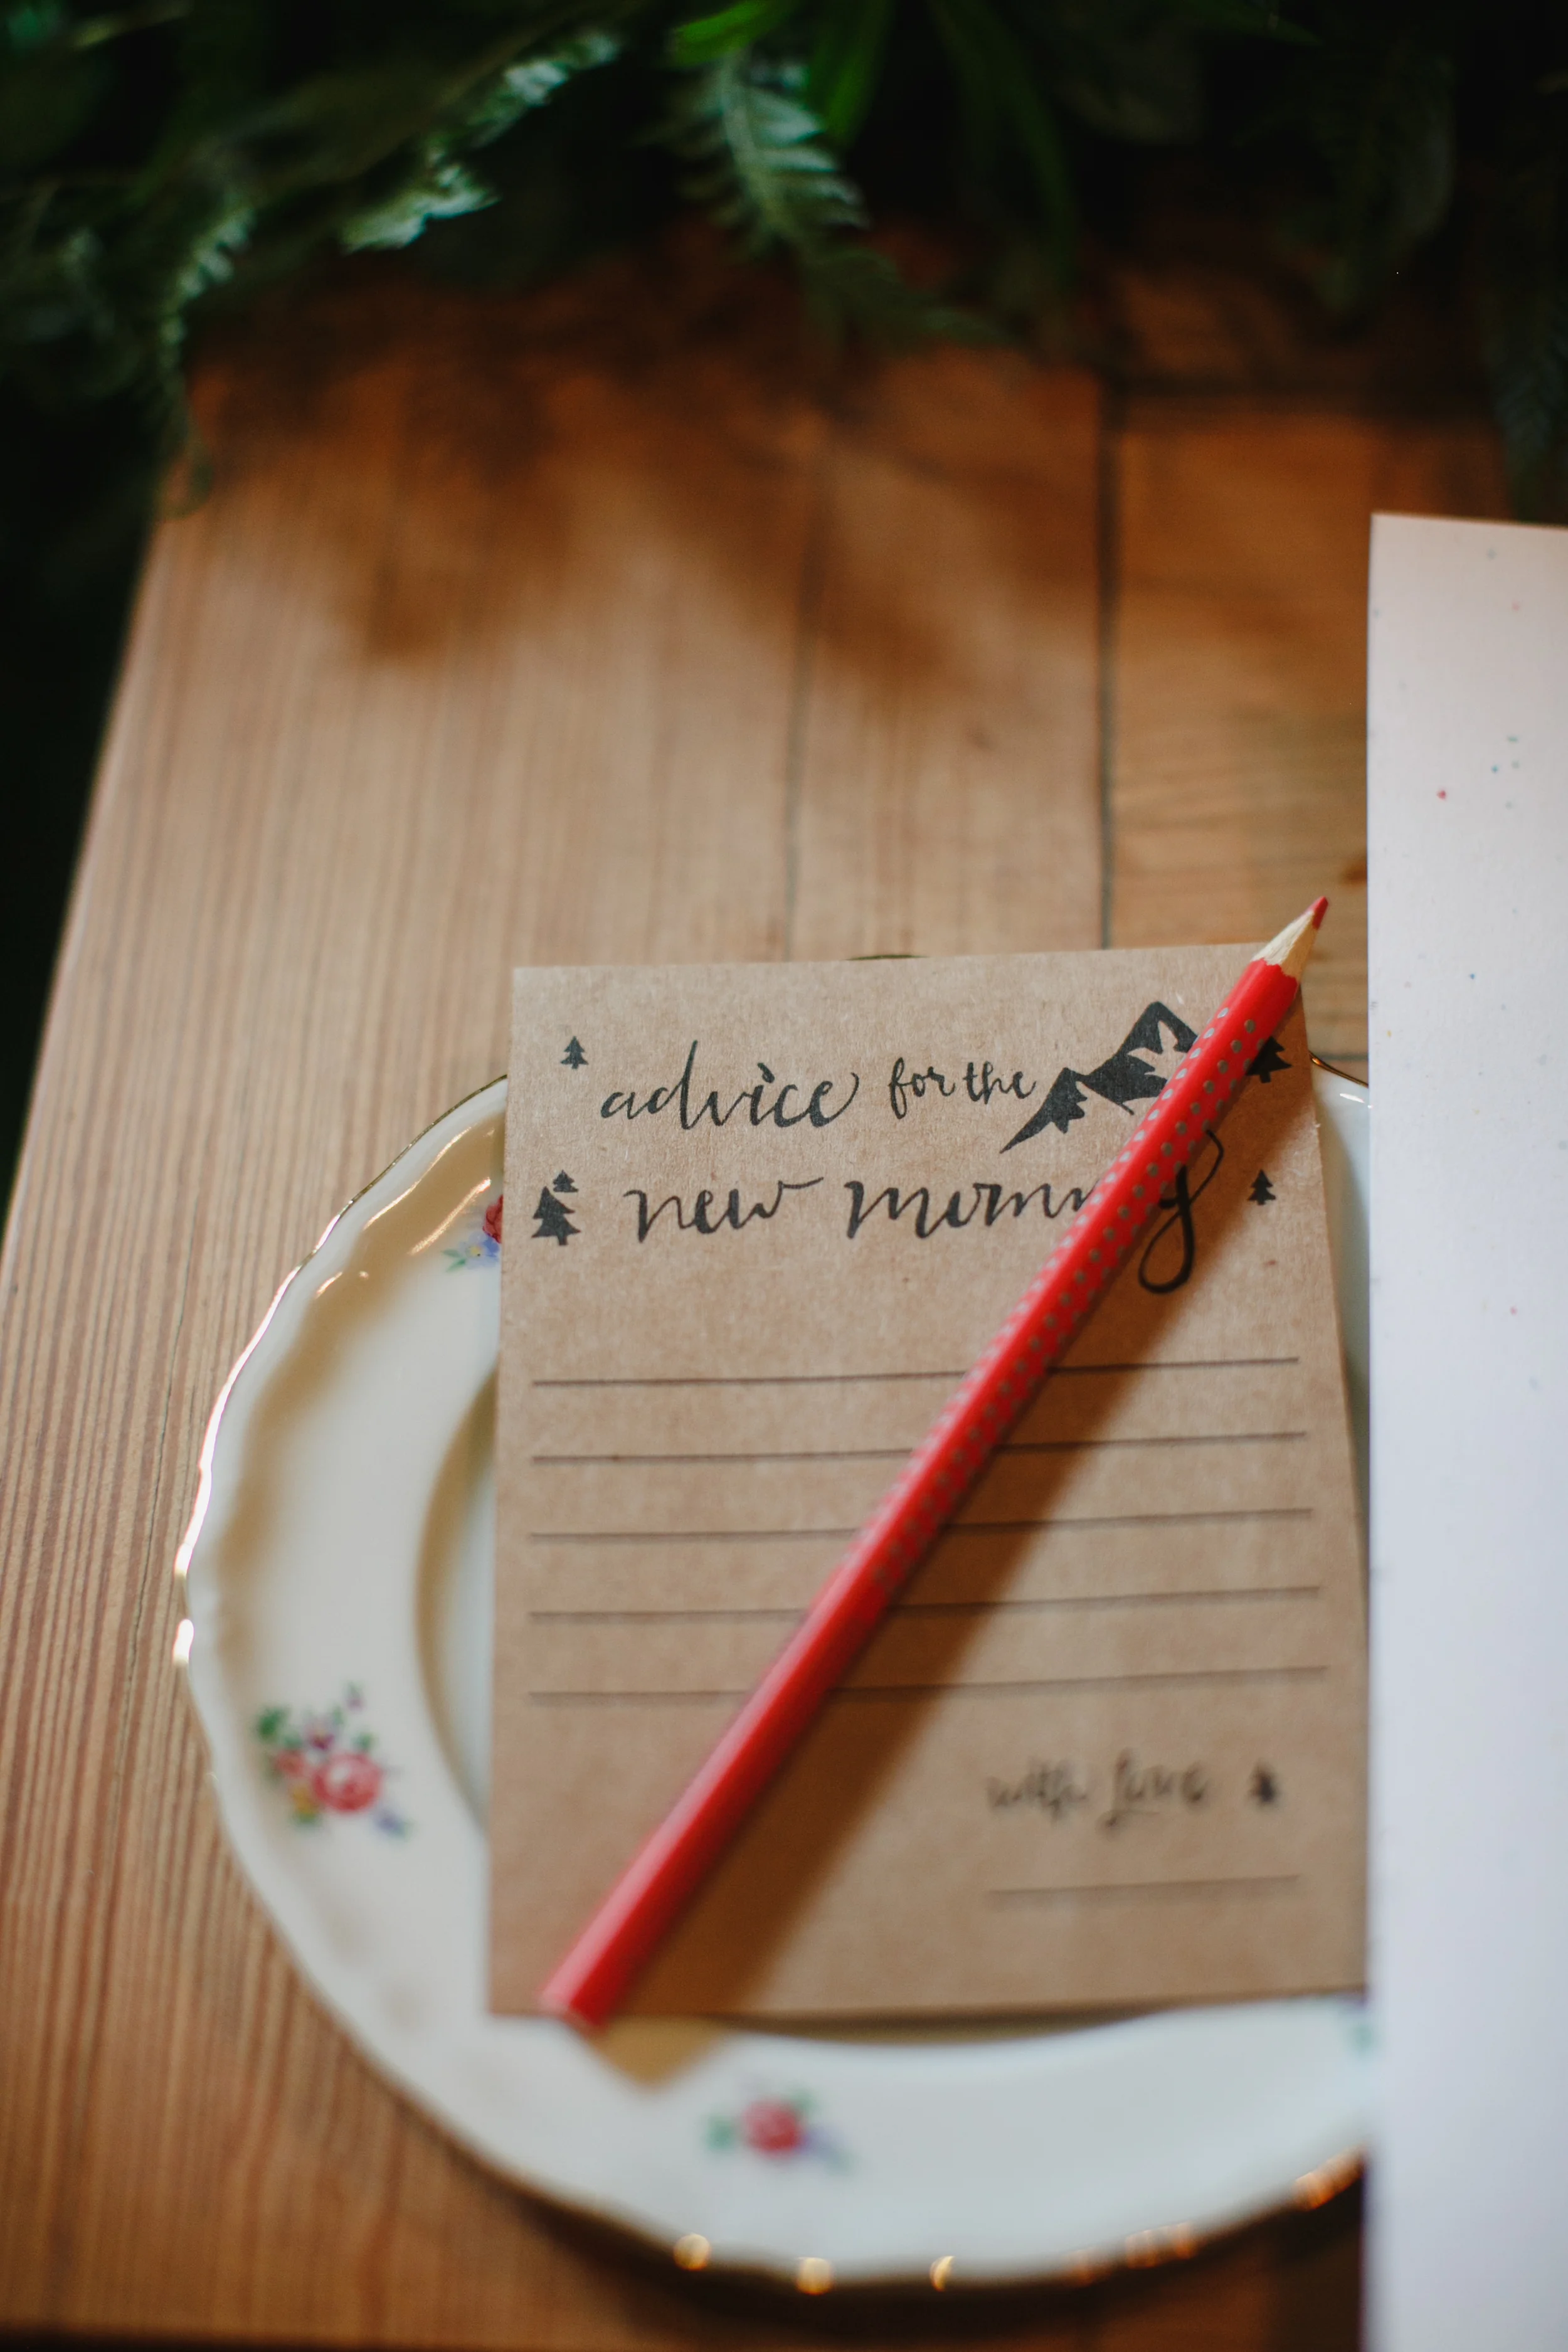 advice for the
new mommy
with love